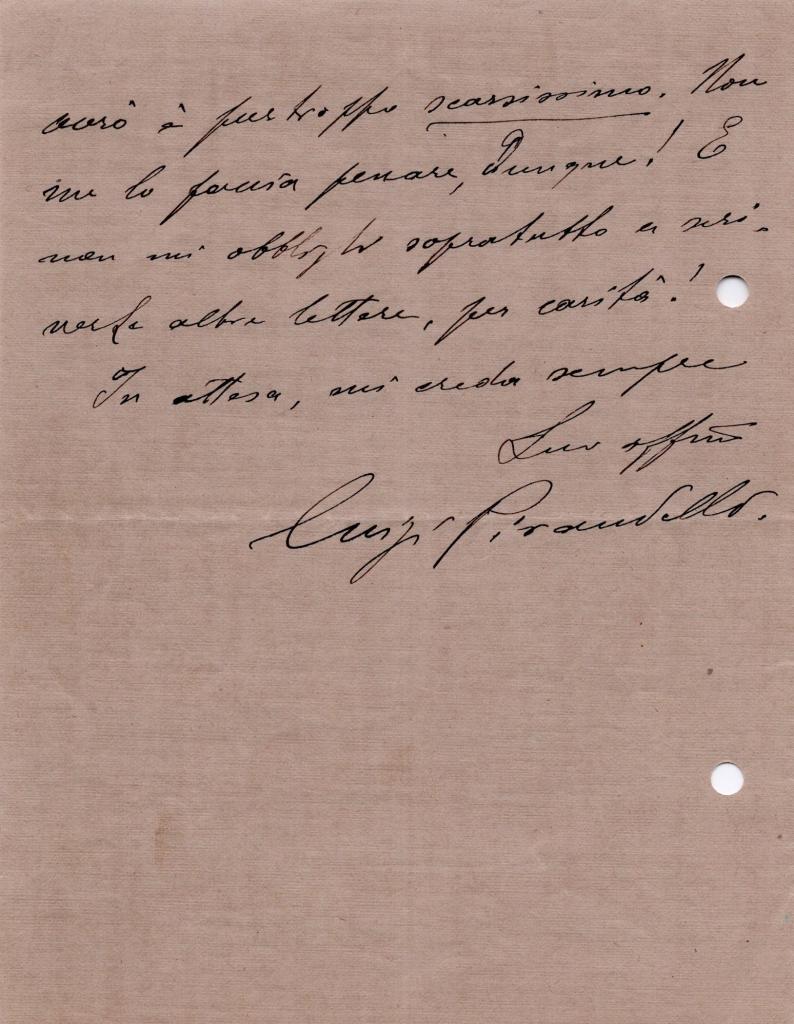 avrò è purtroppo scarsissimo. Non
me lo faccia penare, dunque! E
non mi obblighi sopratutto a scri-
verLe altre lettere, per carità!
In attesa, mi creda sempre
Suo affmo
Luigi Pirandello.